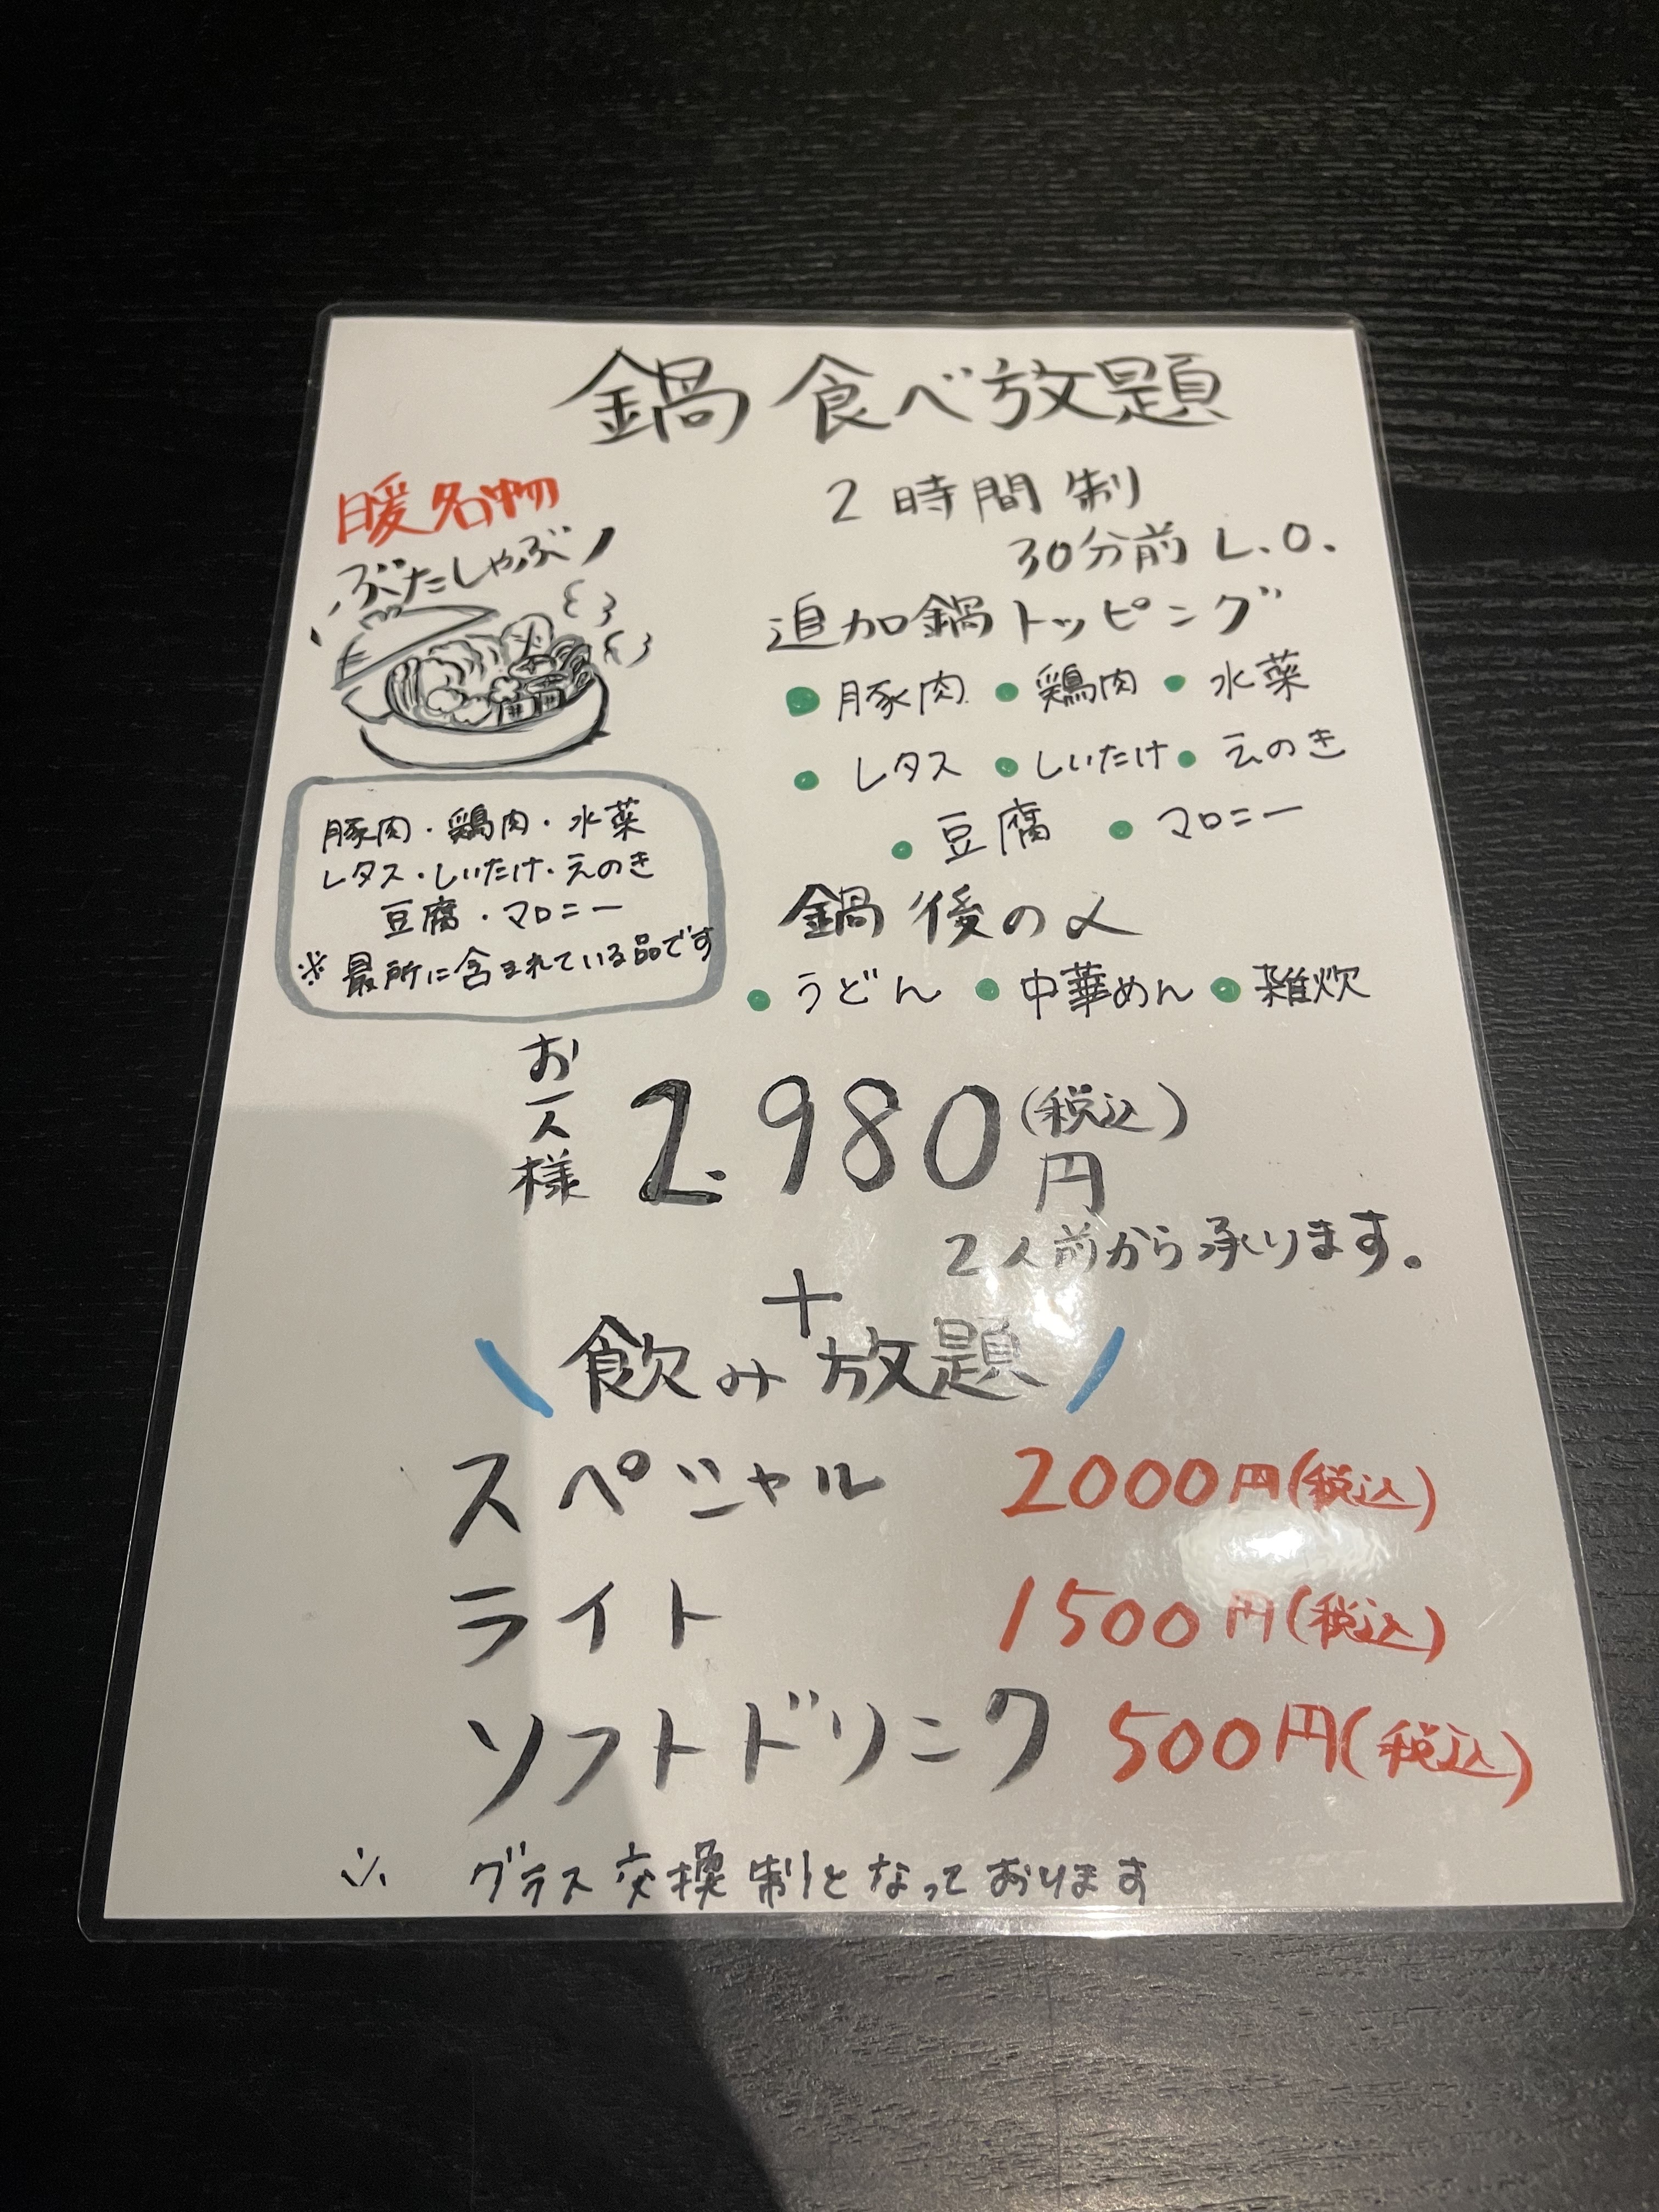 鍋 食べ放題
暖名物
ぶたしゃぶ
2時間制
30分前 L.O.
追加鍋トッピング
● 豚肉 ● 鶏肉 ● 水菜
● レタス ● しいたけ ● えのき
● 豆腐 ● マロニー
豚肉・鶏肉・水菜
レタス・しいたけ・えのき
豆腐・マロニー
※ 最所に含まれている品です
鍋後の〆
● うどん ● 中華めん ● 雑炊
お一人様 2.980円(税込)
2人前から承ります。
+
\ 飲み放題 /
スペシャル 2000円(税込)
ライト 1500円(税込)
ソフトドリンク 500円(税込)
※ グラス交換制となっております